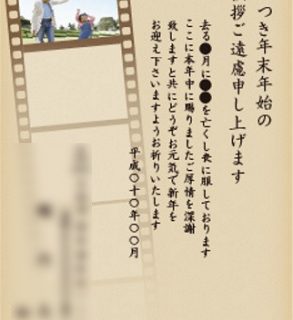 つき年末年始の
拶ご遠慮申し上げます
去る●月に●●を亡くし喪に服しております
ここに本年中に賜りましたご厚情を深謝
致しますと共にどうぞお元気で新年を
お迎え下さいますようお祈りいたします
平成〇十〇年〇〇月